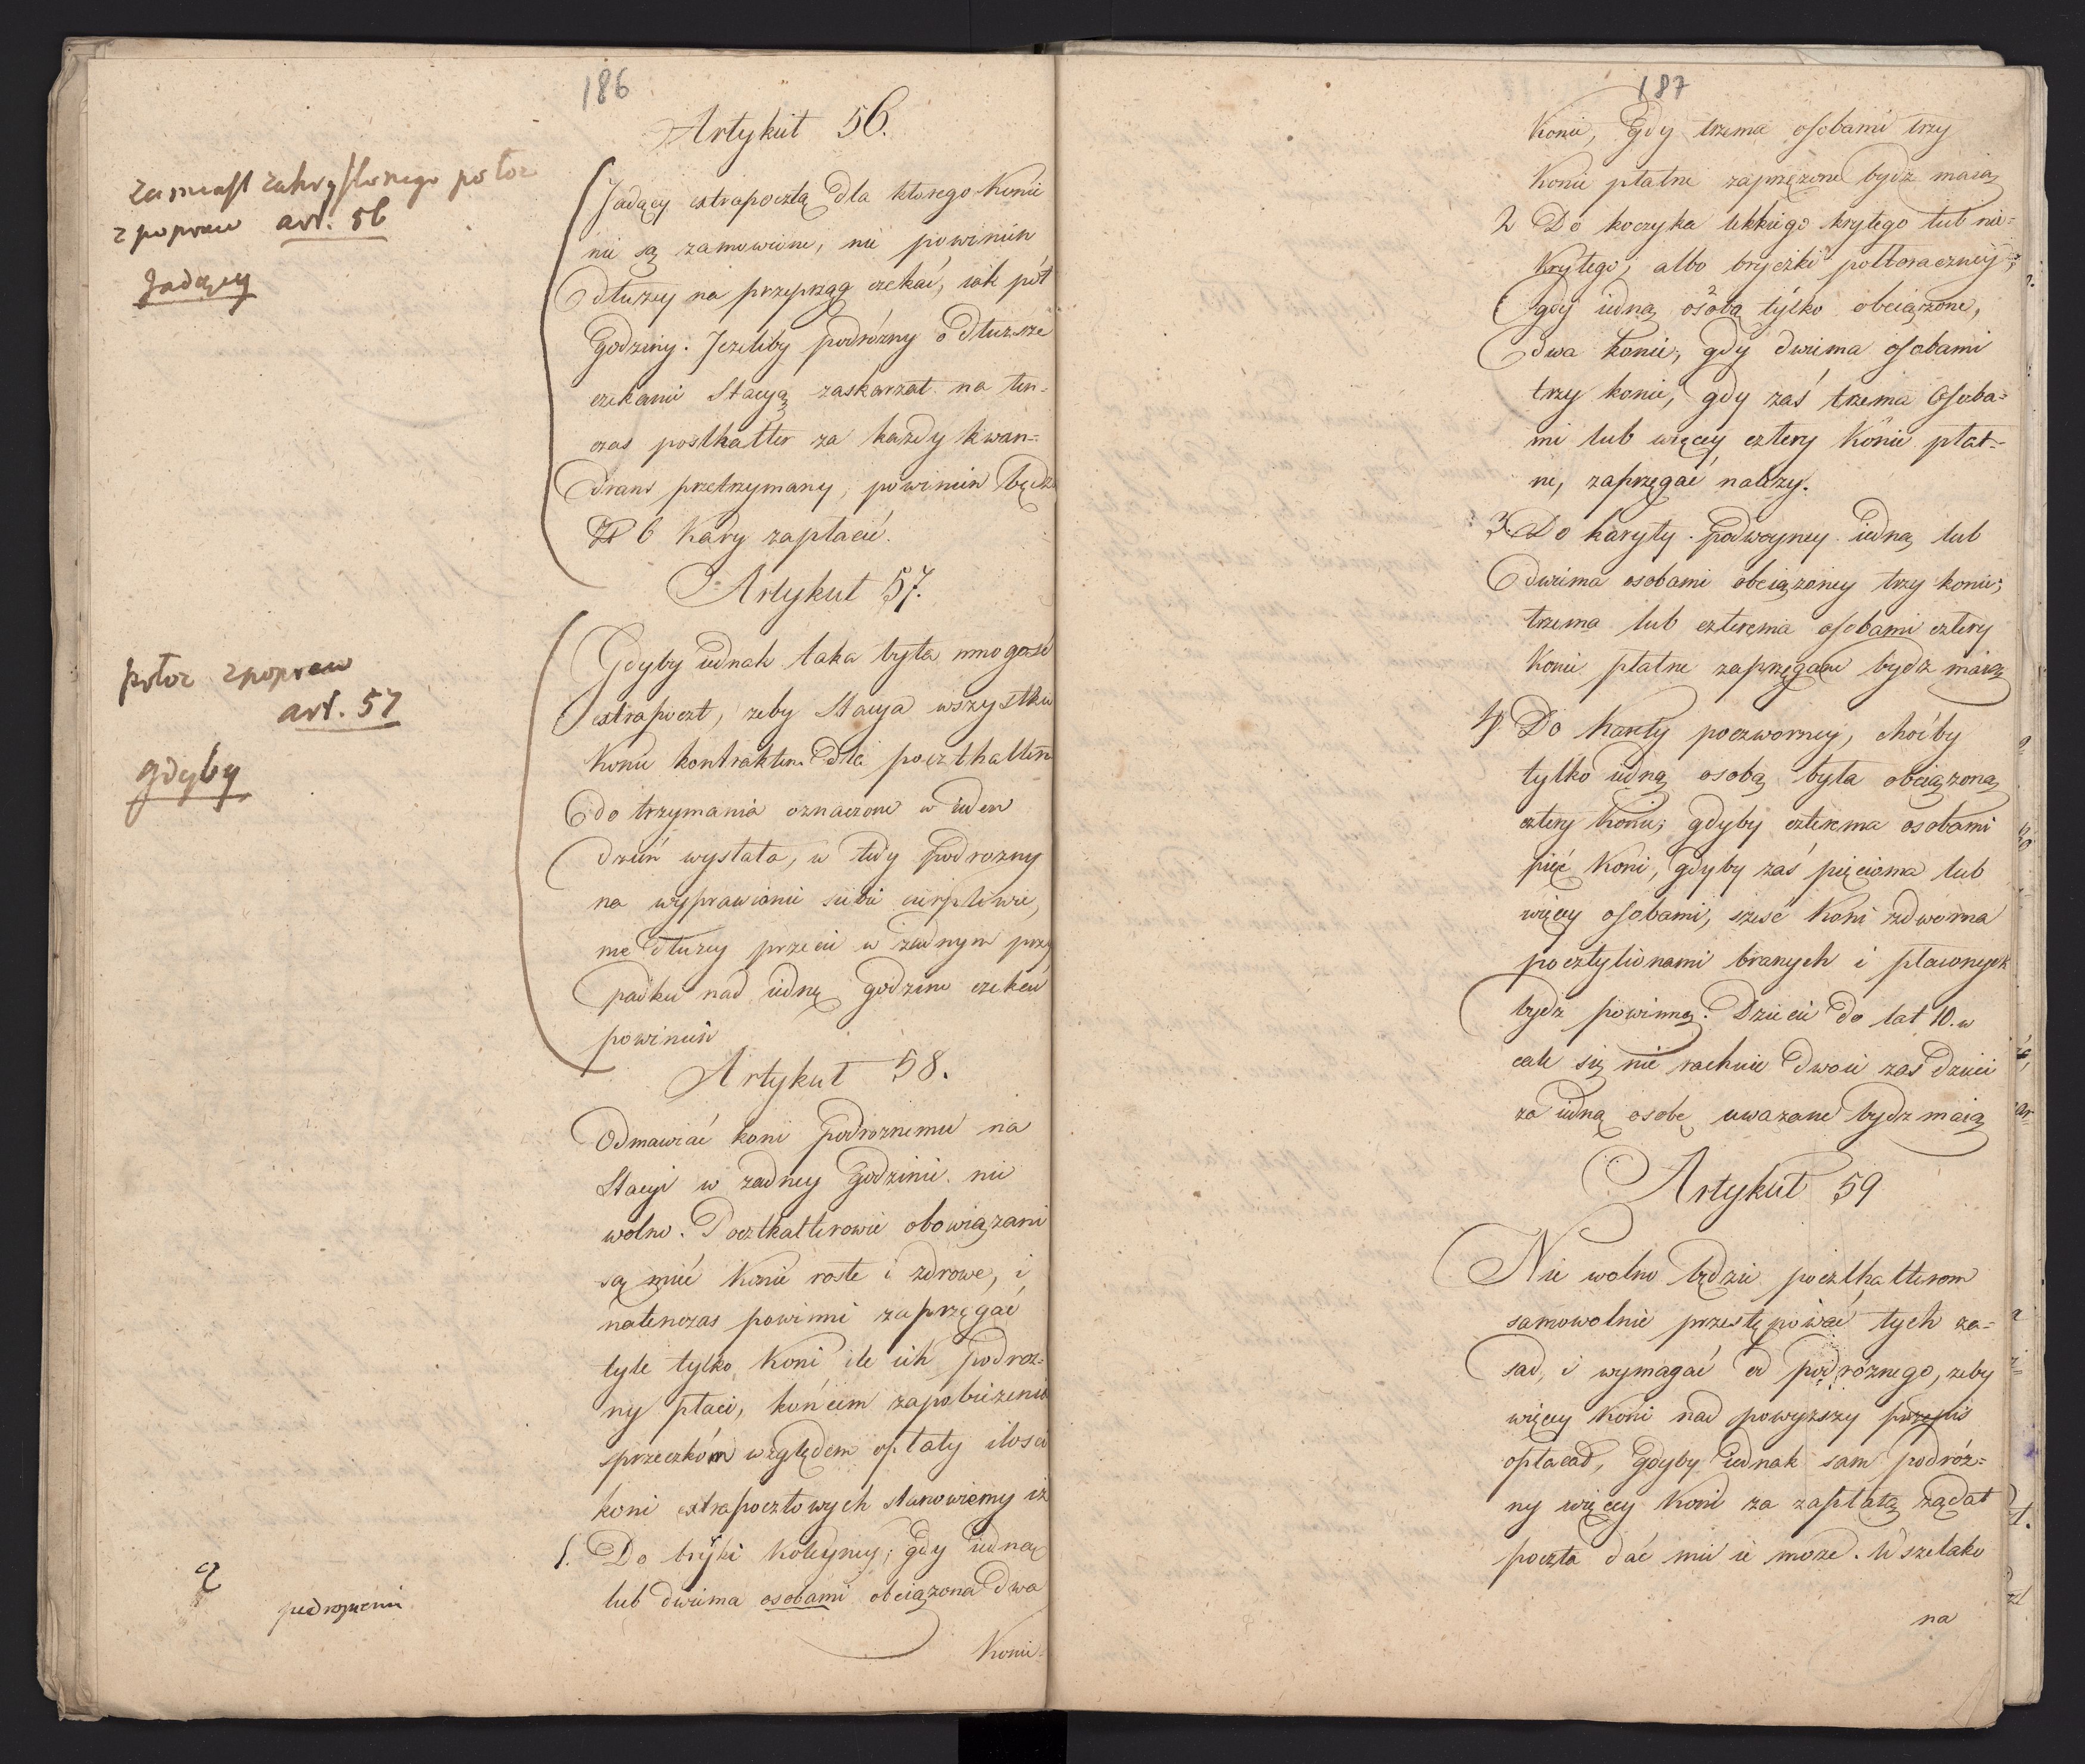 186
Artykuł 56.
zamiast zakryślonego połoz
z popraw art. 56
Jadący
Jadący extrapocztą dla ktorego konie
nie są zamowione, nie powinien
dłuzey na przeprząg czekać, iak pół
godziny. Jezeliby podrózny o dłuzsze
czekanie Stacyą zaskarzał na ten=
czas posthalter za kazdy kwan=
drans przetrzymany, powinien będzie
Zł 6 kary zapłacić.
Artykuł 57.
połoz z popraw
art. 57
gdyby
Gdyby iednak taka była mnogość
extrapoczt, zeby Stacya wszystkie
konie kontraktem dla poczthaltera
do trzymania oznaczone w ieden
dzień wysłała, w tedy podrozny
na wyprawienie siebie cierpliwie,
nie dłuzey przecie w zadnym przy
padku nad iednę godzinę czekać
powinien
Artykuł 58.
Odmawiać koni podroznemu na
Stacyi w zadney godzinie nie
wolno. Poczthalterowie obowiązani
są mieć konie rosłe i zdrowe, i
natenczas powinni zaprzęgać
tyle tylko koni ile ich podroz=
ny płaci, końcem zapobiezenia
sprzeczkóm względem opłaty ilości
koni extrapocztowych stanowiemy iż
1. Do bryki koleyney, gdy iedną
lub dwiema osobami obciązona dwa
Konie
187
Konie, gdy trzema osobami trzy
konie płatne zaprzęzone bydz maią
2 Do koczyka lekkiego krytego lub nie=
krytego, albo bryczki połtoraczney,
gdy iedną osobą tylko obciązone,
dwa konie, gdy dwiema osobami
trzy konie, gdy zaś trzema osoba=
mi lub więcey cztery konie płat=
ne, zaprzęgać nalezy.
3. Do karyty podwoyney iedną lub
dwiema osobami obciązoney trzy konie;
trzema lub czterema osobami cztery
konie płatne zaprzęgane bydz maią
4. Do karety poczworney, choćby
tylko iedną osobą była obciązoną
cztery konie; gdyby czterema osobami
pięć koni, gdyby zaś pięcioma lub
więcey osobami, szesć koni zdwoma
pocztylionami branych i płaconych
bydz powinno. Dziecie do lat 10. w
cale się nie rachuie dwoie zaś dzieci
za iedną osobę uwazane bydz maią
Artykuł 59
Nie wolno będzie poczthalterom
samowolnie przestępować tych za=
sad, i wymagać od podróznego, zeby
więcey koni nad powyzszy przepis
opłacał, gdyby iednak sam podróz=
ny więcey koni za zapłatą ządał
poczta dać mu ie moze. Wszelako
na